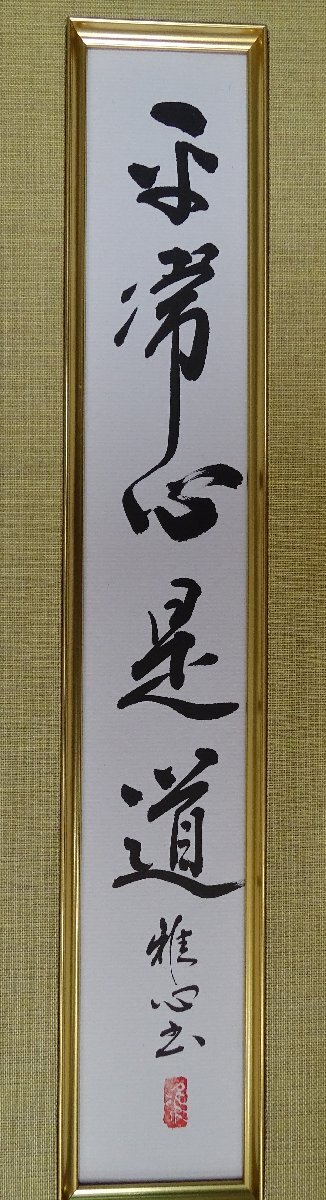 平常心是道
雅心书